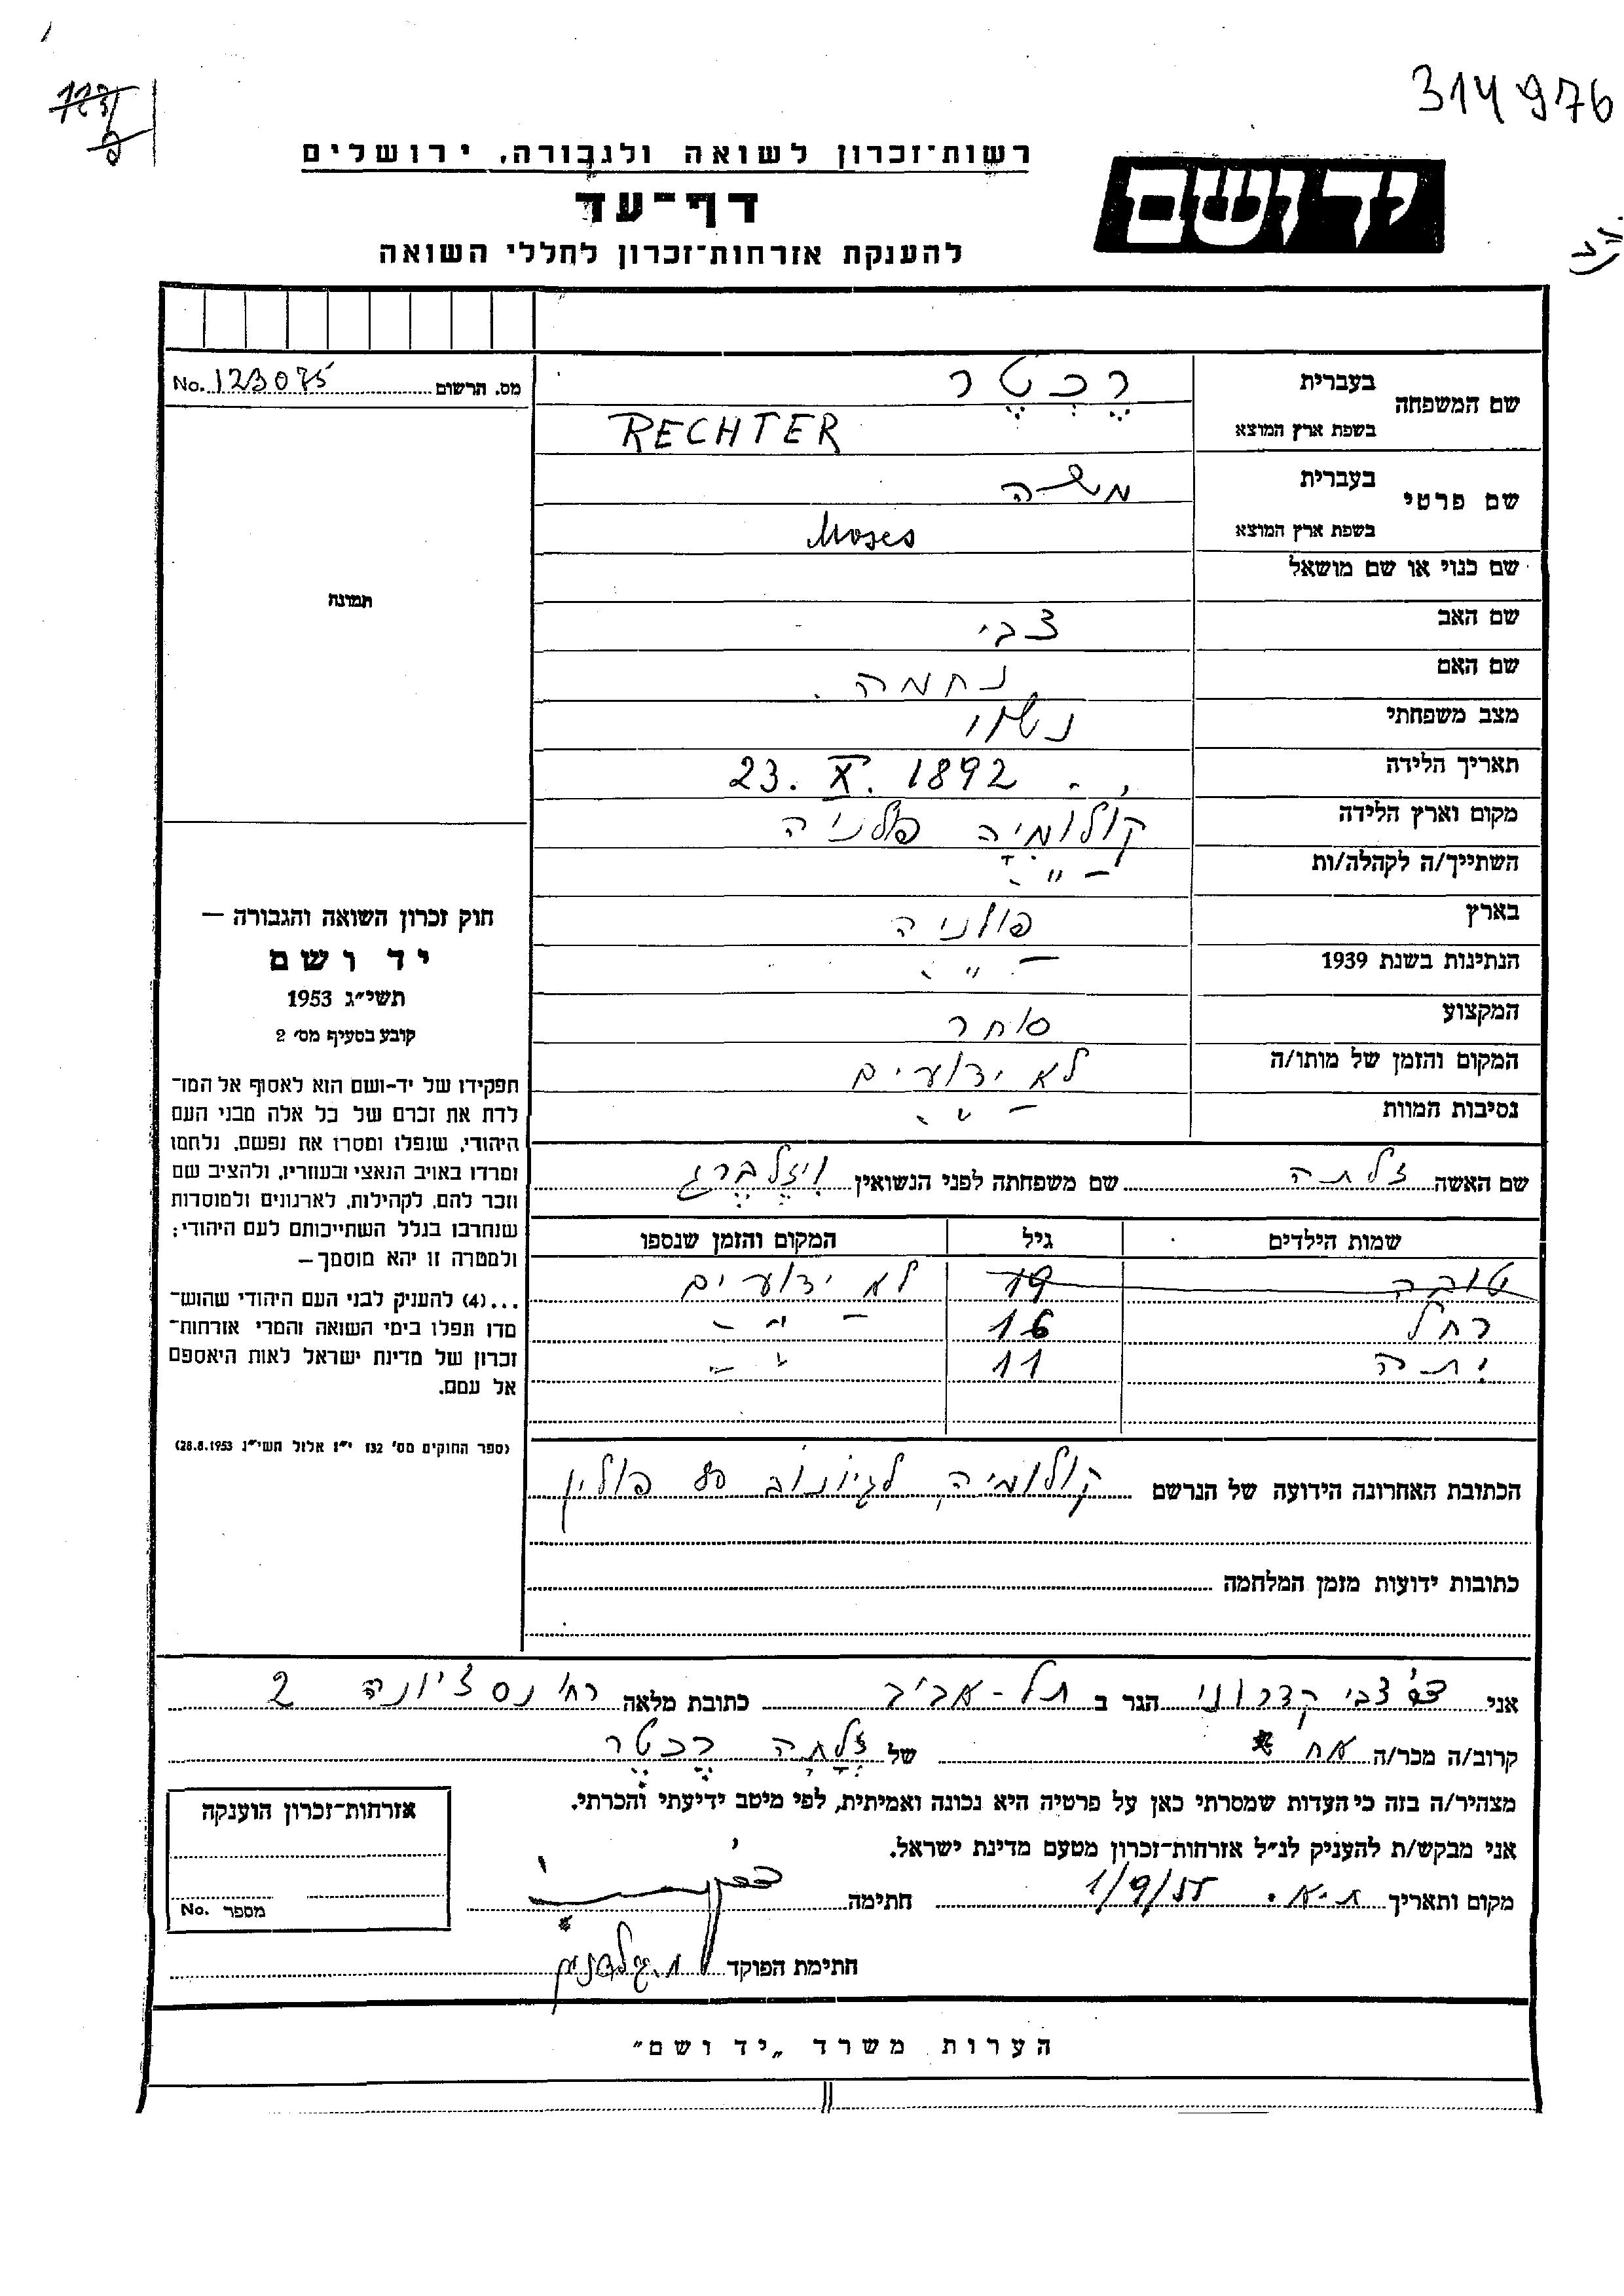 314976
123/
רשות־זכרון לשואה ולגבורה, ירושלים
יד ושם
דף־עד
להענקת אזרחות־זכרון לחללי השואה
מס. הרשום No. 123075
שם המשפחה בעברית רֶכְטֶר
בשפת ארץ המוצא RECHTER
שם פרטי בעברית משה
בשפת ארץ המוצא Moses
שם כנוי או שם מושאל
תמונה
שם האב צבי
שם האם נחמה.
מצב משפחתי נשוי
תאריך הלידה 23. X. 1892
מקום וארץ הלידה קולומיה פולניה
השתייך/ה לקהלה/ות - " -
בארץ פולניה
הנתינות בשנת 1939 - " -
המקצוע סוחר
המקום והזמן של מותו/ה לא ידועים
נסיבות המוות - " -
חוק זכרון השואה והגבורה —
יד ושם
תשי״ג 1953
קובע בסעיף מס׳ 2
תפקידו של יד-ושם הוא לאסוף אל המו־
לדת את זכרם של כל אלה מבני העם
היהודי, שנפלו ומסרו את נפשם, נלחמו
ומרדו באויב הנאצי ובעוזריו, ולהציב שם
וזכר להם, לקהילות, לארגונים ולמוסדות
שנחרבו בגלל השתייכותם לעם היהודי;
ולמטרה זו יהא מוסמך —
...(4) להעניק לבני העם היהודי שהוש־
מדו ונפלו בימי השואה והמרי אזרחות־
זכרון של מדינת ישראל לאות היאספם
אל עמם.
(ספר החוקים מס׳ 132 י״ז אלול תשי״ג 28.8.1953)
שם האשה זלתה שם משפחתה לפני הנשואין ויזלברג
שמות הילדים גיל המקום והזמן שנספו
טובה 19 לא ידועים
רחל 16 - " -
יתה 11 - " -
הכתובת האחרונה הידועה של הנרשם קולומיה, לגיונוב 80 פולין
כתובות ידועות מזמן המלחמה
אני צבי קדרוני הגר ב תל-אביב כתובת מלאה רח' נס ציונה 2
קרוב/ה מכר/ה אח של זלתה רֶכטֶר
מצהיר/ה בזה כי העדות שמסרתי כאן על פרטיה היא נכונה ואמיתית, לפי מיטב ידיעתי והכרתי.
אני מבקש/ת להעניק לנ״ל אזרחות־זכרון מטעם מדינת ישראל.
מקום ותאריך ת.א. 1/9/55 חתימה
חתימת הפוקד
אזרחות־זכרון הוענקה
מספר No.
הערות משרד „יד ושם״